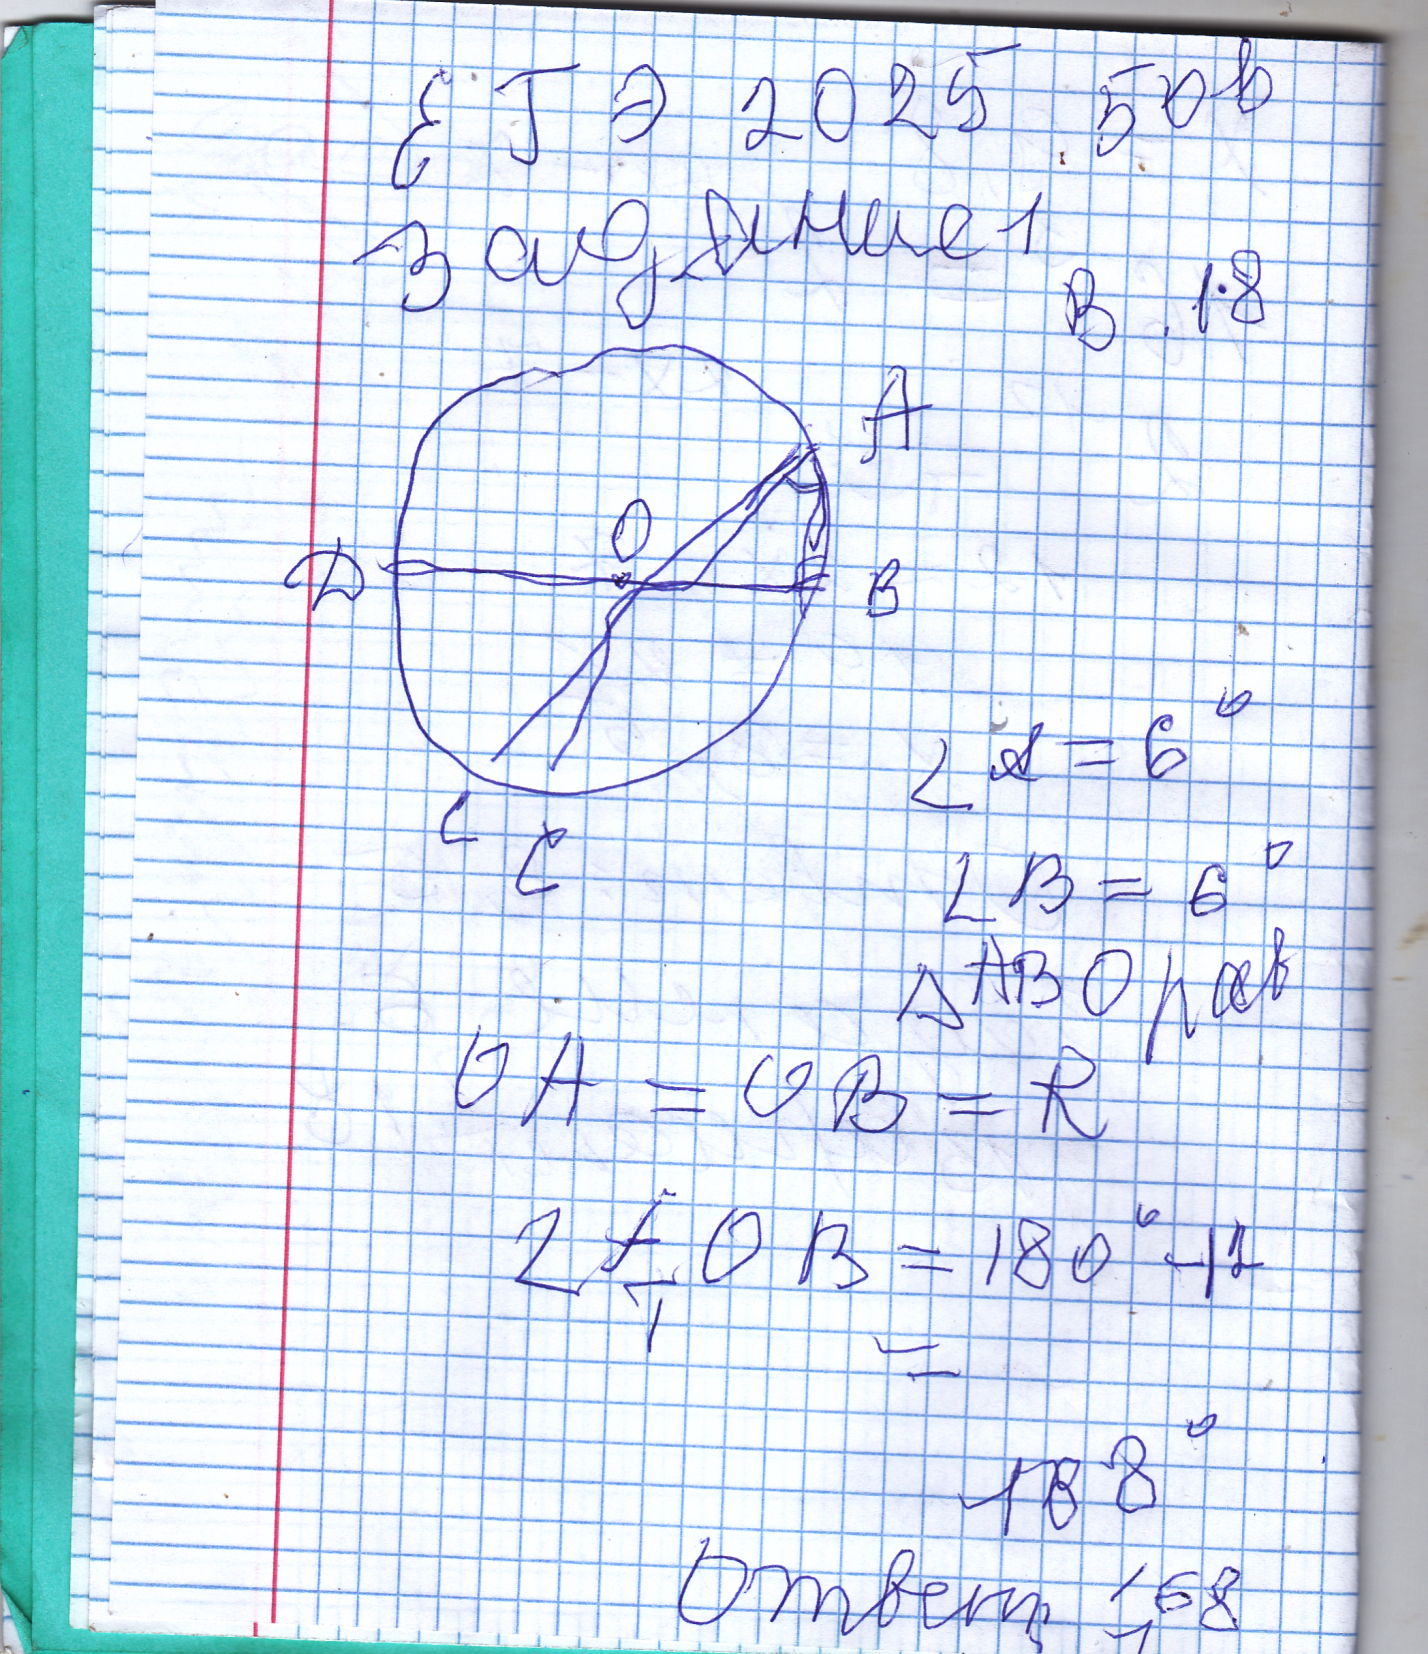 ЕГЭ 2025 50 в
Задание 1
В 1.8
А
О
D
В
С
С
∠A = 6°
∠B = 6°
△ABO рав
OA = OB = R
∠AOB = 180° - 12
=
168°
Ответ 168